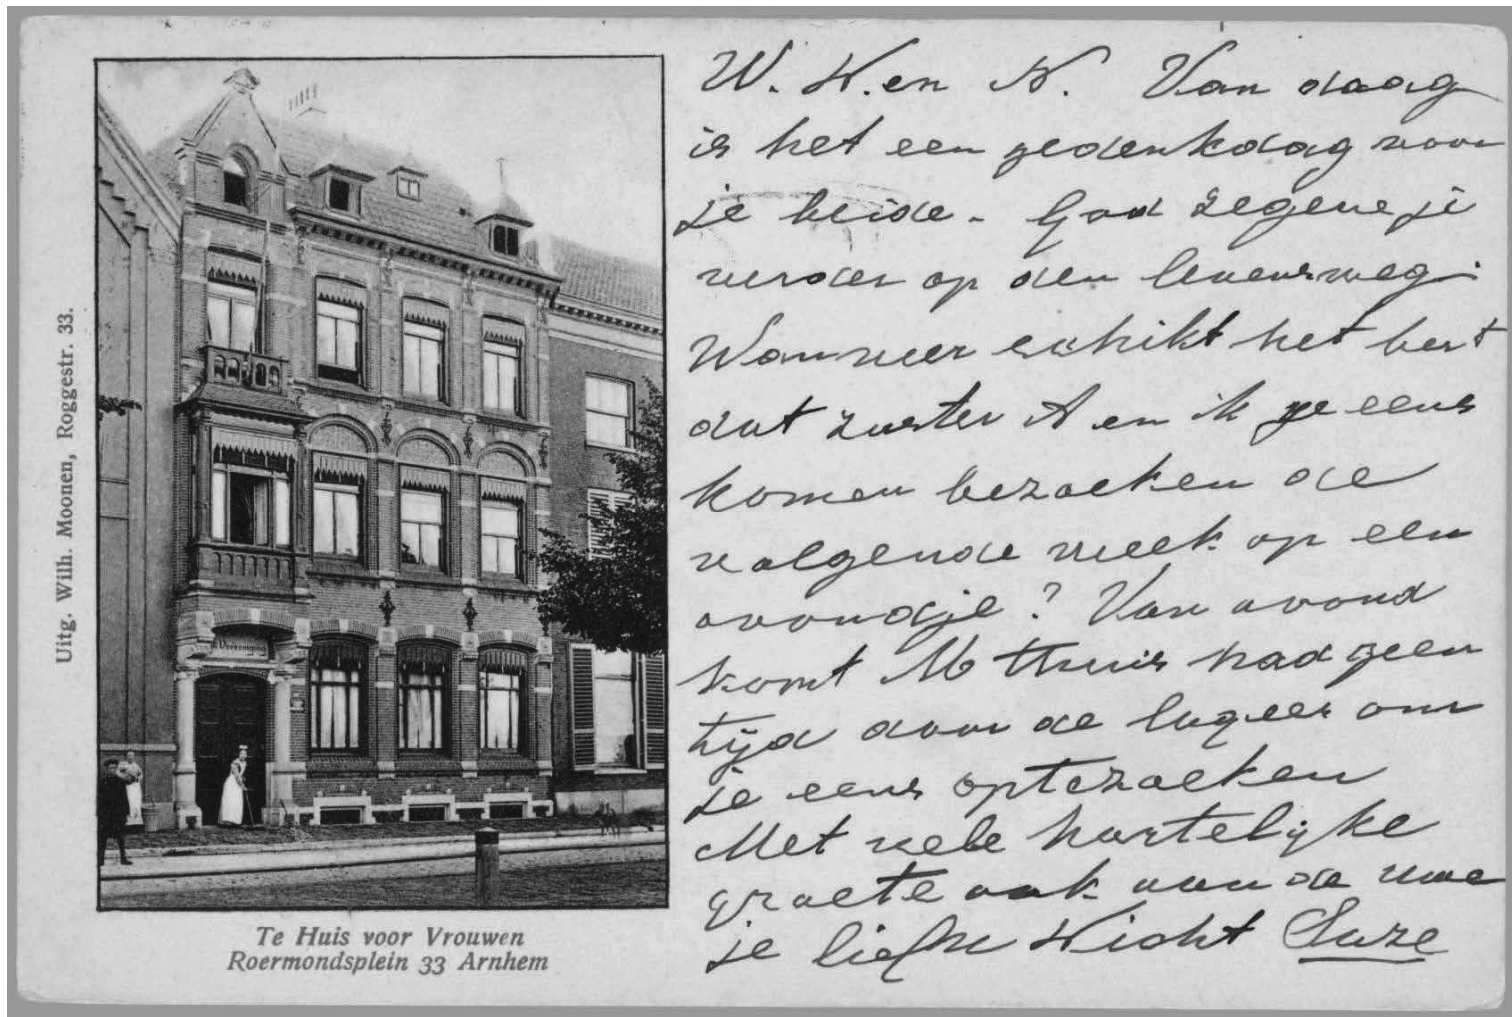 Uitg. Wilh. Moonen, Roggestr. 33.
Vereeniging
Te Huis voor Vrouwen
Roermondsplein 33 Arnhem
W. N. en N. Van daag
is het een gedenkdag voor
je beide. God zegene je
verder op den levensweg.
Wanneer schikt het best
dat zuster A en ik je eens
komen bezoeken de
volgende week op een
avondje? Van avond
komt M thuis had geen
tijd door de logeer om
je eens optezoeken
Met vele hartelijke
groete ook aan de uwe
je liefh Nicht Suze